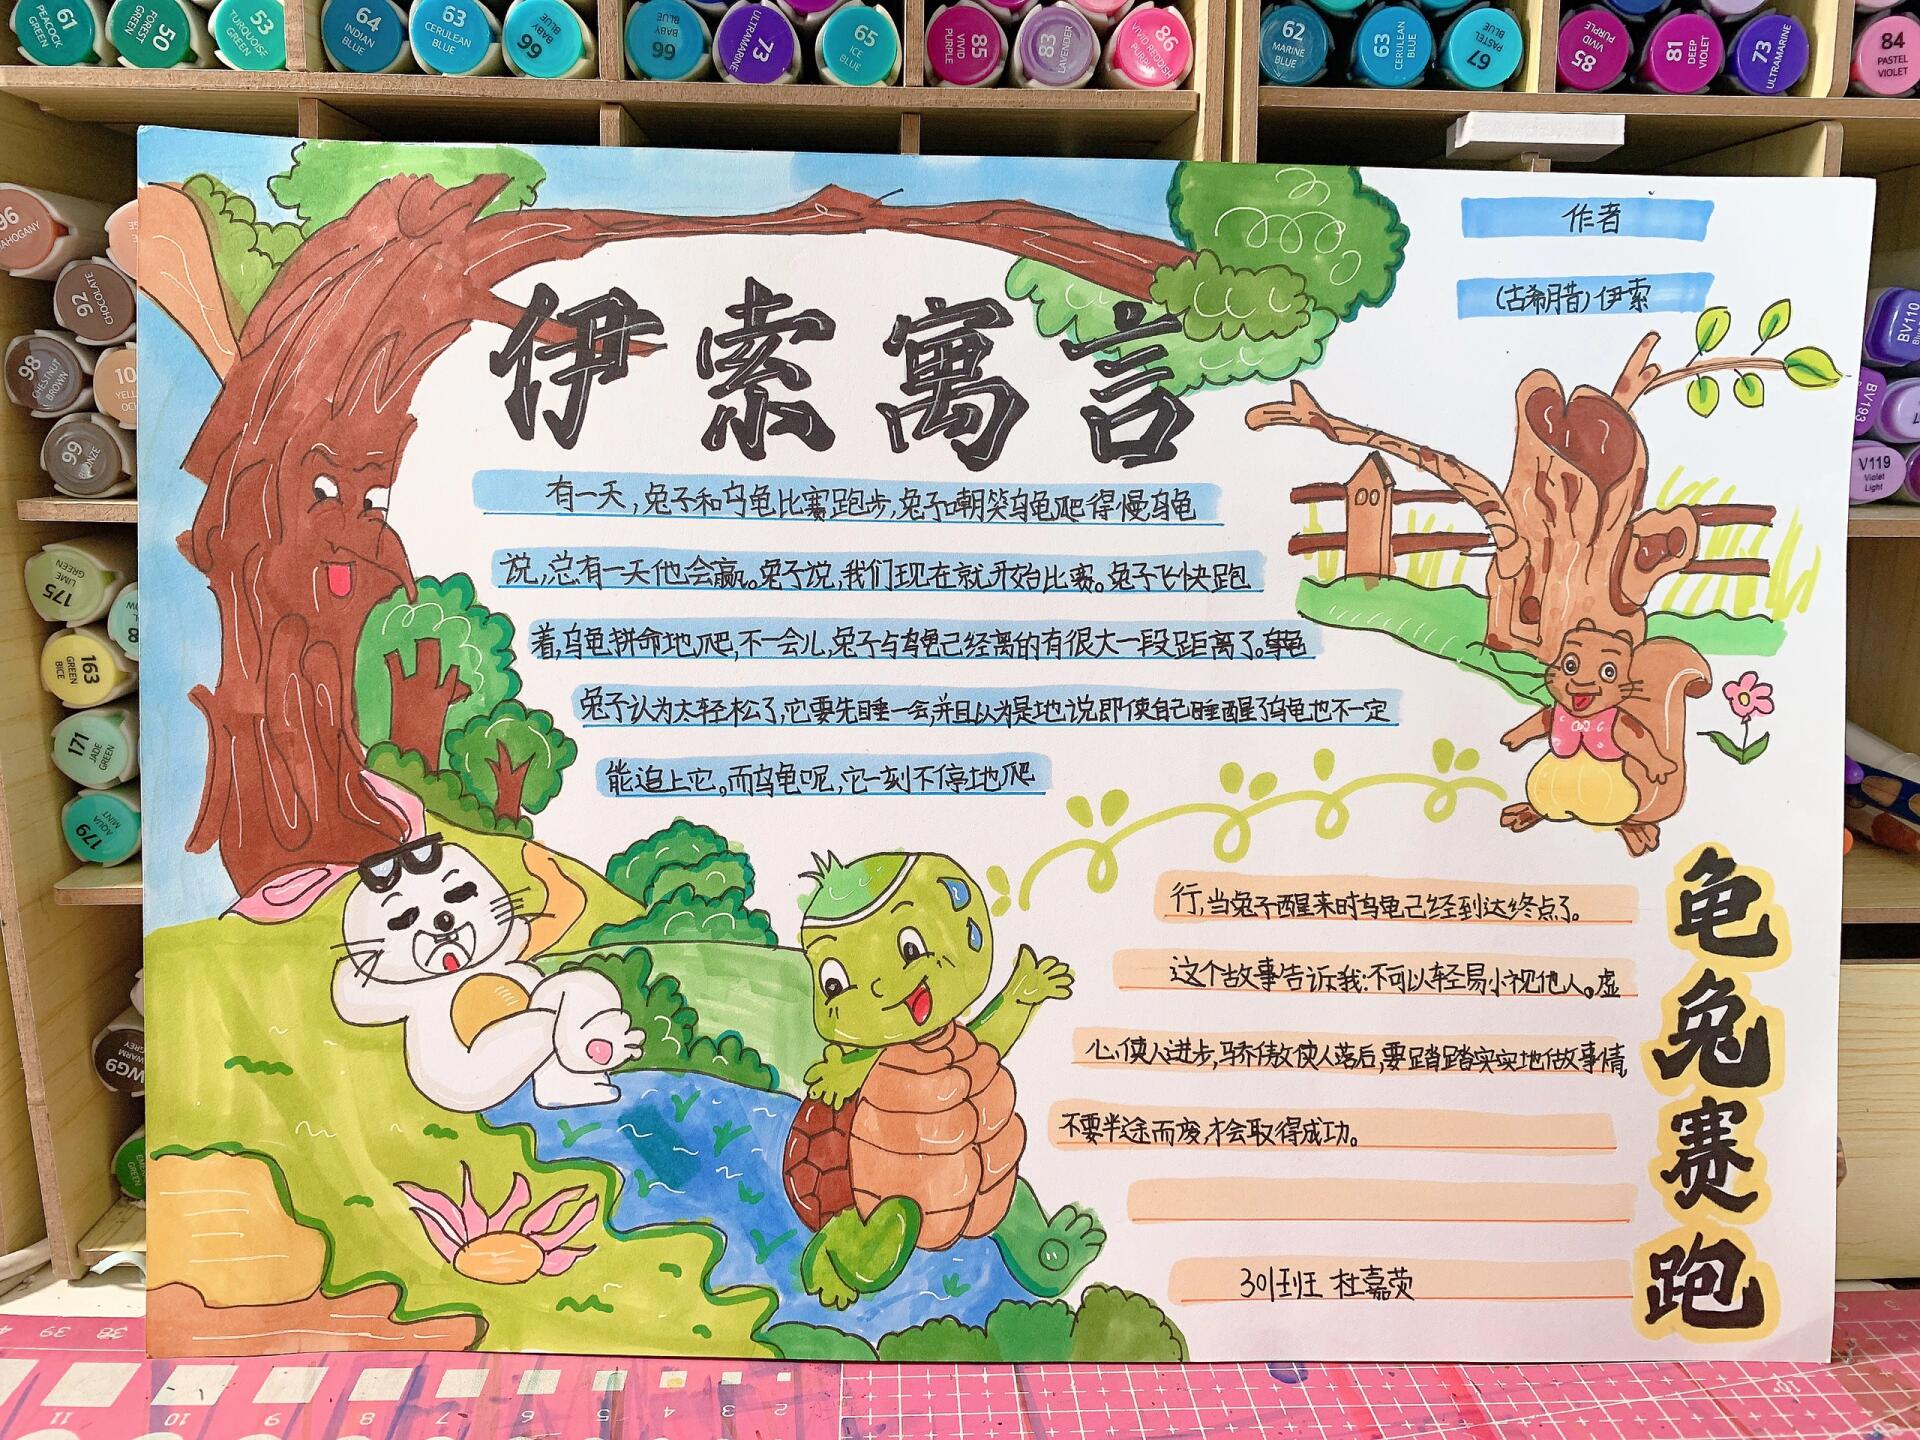 61 PEACOCK GREEN
50 FOREST GREEN
53 TURQUOISE GREEN
64 INDIAN BLUE
63 CERULEAN BLUE
66 BABY BLUE
66 BABY BLUE
73 ULTRAMARINE
65 ICE BLUE
85 VIVID PURPLE
83 LAVENDER
86 VIVID REDDISH PURPLE
62 MARINE BLUE
63 CERULEAN BLUE
67 PASTEL BLUE
85 VIVID PURPLE
81 DEEP VIOLET
73 ULTRAMARINE
84 PASTEL VIOLET
96 MAHOGANY
92 CHOCOLATE
98 CHESTNUT BROWN
99 BRONZE
175 LIME GREEN
163 GREEN BICE
171 JADE GREEN
179 AQUA MINT
WG9 WARM GREY
BV110
BV193
V119 Violet Light
作者
(古希腊)伊索
伊索寓言
有一天,兔子和乌龟比赛跑步,兔子嘲笑乌龟爬得慢乌龟
说,总有一天他会赢。兔子说,我们现在就开始比赛。兔子飞快跑
着,乌龟拼命地爬,不一会儿,兔子与乌龟已经离的有很大一段距离了。
兔子认为太轻松了,它要先睡一会,并且以为是地说即使自己睡醒了乌龟也不一定
能追上它。而乌龟呢,它一刻不停地爬
行,当兔子醒来时乌龟已经到达终点了。
这个故事告诉我:不可以轻易小视他人。虚
心使人进步,骄傲使人落后,要踏踏实实地做事情,
不要半途而废,才会取得成功。
301班 杜嘉荧
龟兔赛跑